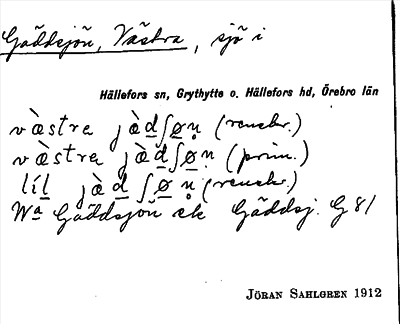 Gäddsjön, Västra, sjö i
Hällefors sn, Grythytte o. Hällefors hd, Örebro län
væ̀stre jæ̀d̲ʃø̲n̥ (renskr.)
væ̀stra jæ̀d̲ʃø̲n̥ (prim.)
líl̲ jæ̀d̲ʃø̲n̥ (renskr.)
Wa Gäddsjön ek Gäddsj. G 81
JÖRAN SAHLGREN 1912